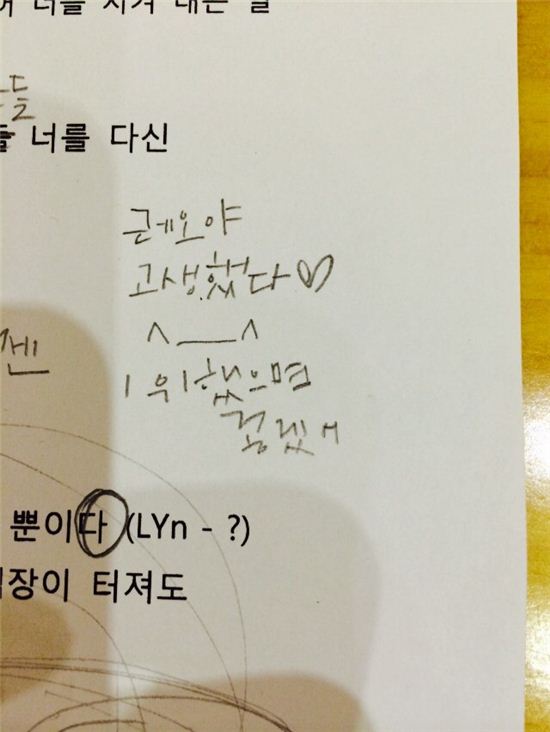 너를 지켜 내는 날
너를 다신
레오야
고생했다♡
^__^
1위했으면
좋겠어
뿐이다 (LYn - ?)
장이 터져도